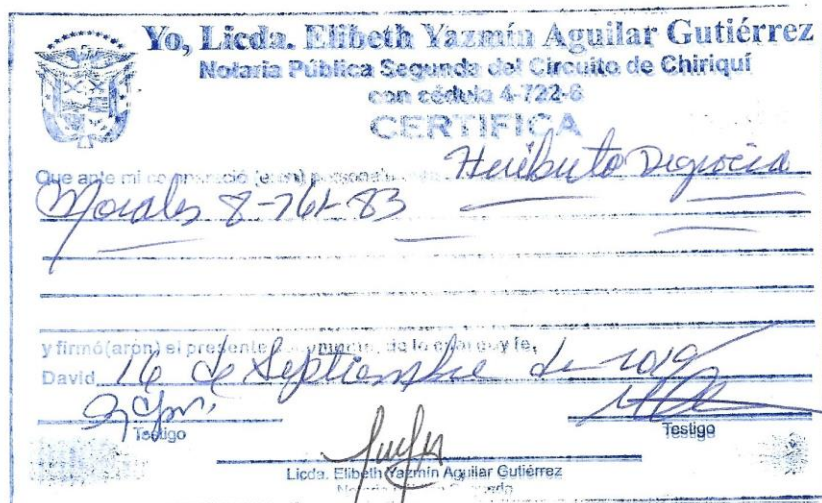 Yo, Licda. Elibeth Yazmín Aguilar Gutiérrez
Notaria Pública Segunda del Circuito de Chiriquí
con cédula 4-722-6
CERTIFICA
Que ante mi compareció (eron) personalmente Heriberto
Morales 8-761-83
y firmó(aron) el presente documento, de lo cual doy fe,
David 16 de Septiembre de 2019
Testigo
Testigo
Licda. Elibeth Yazmín Aguilar Gutiérrez